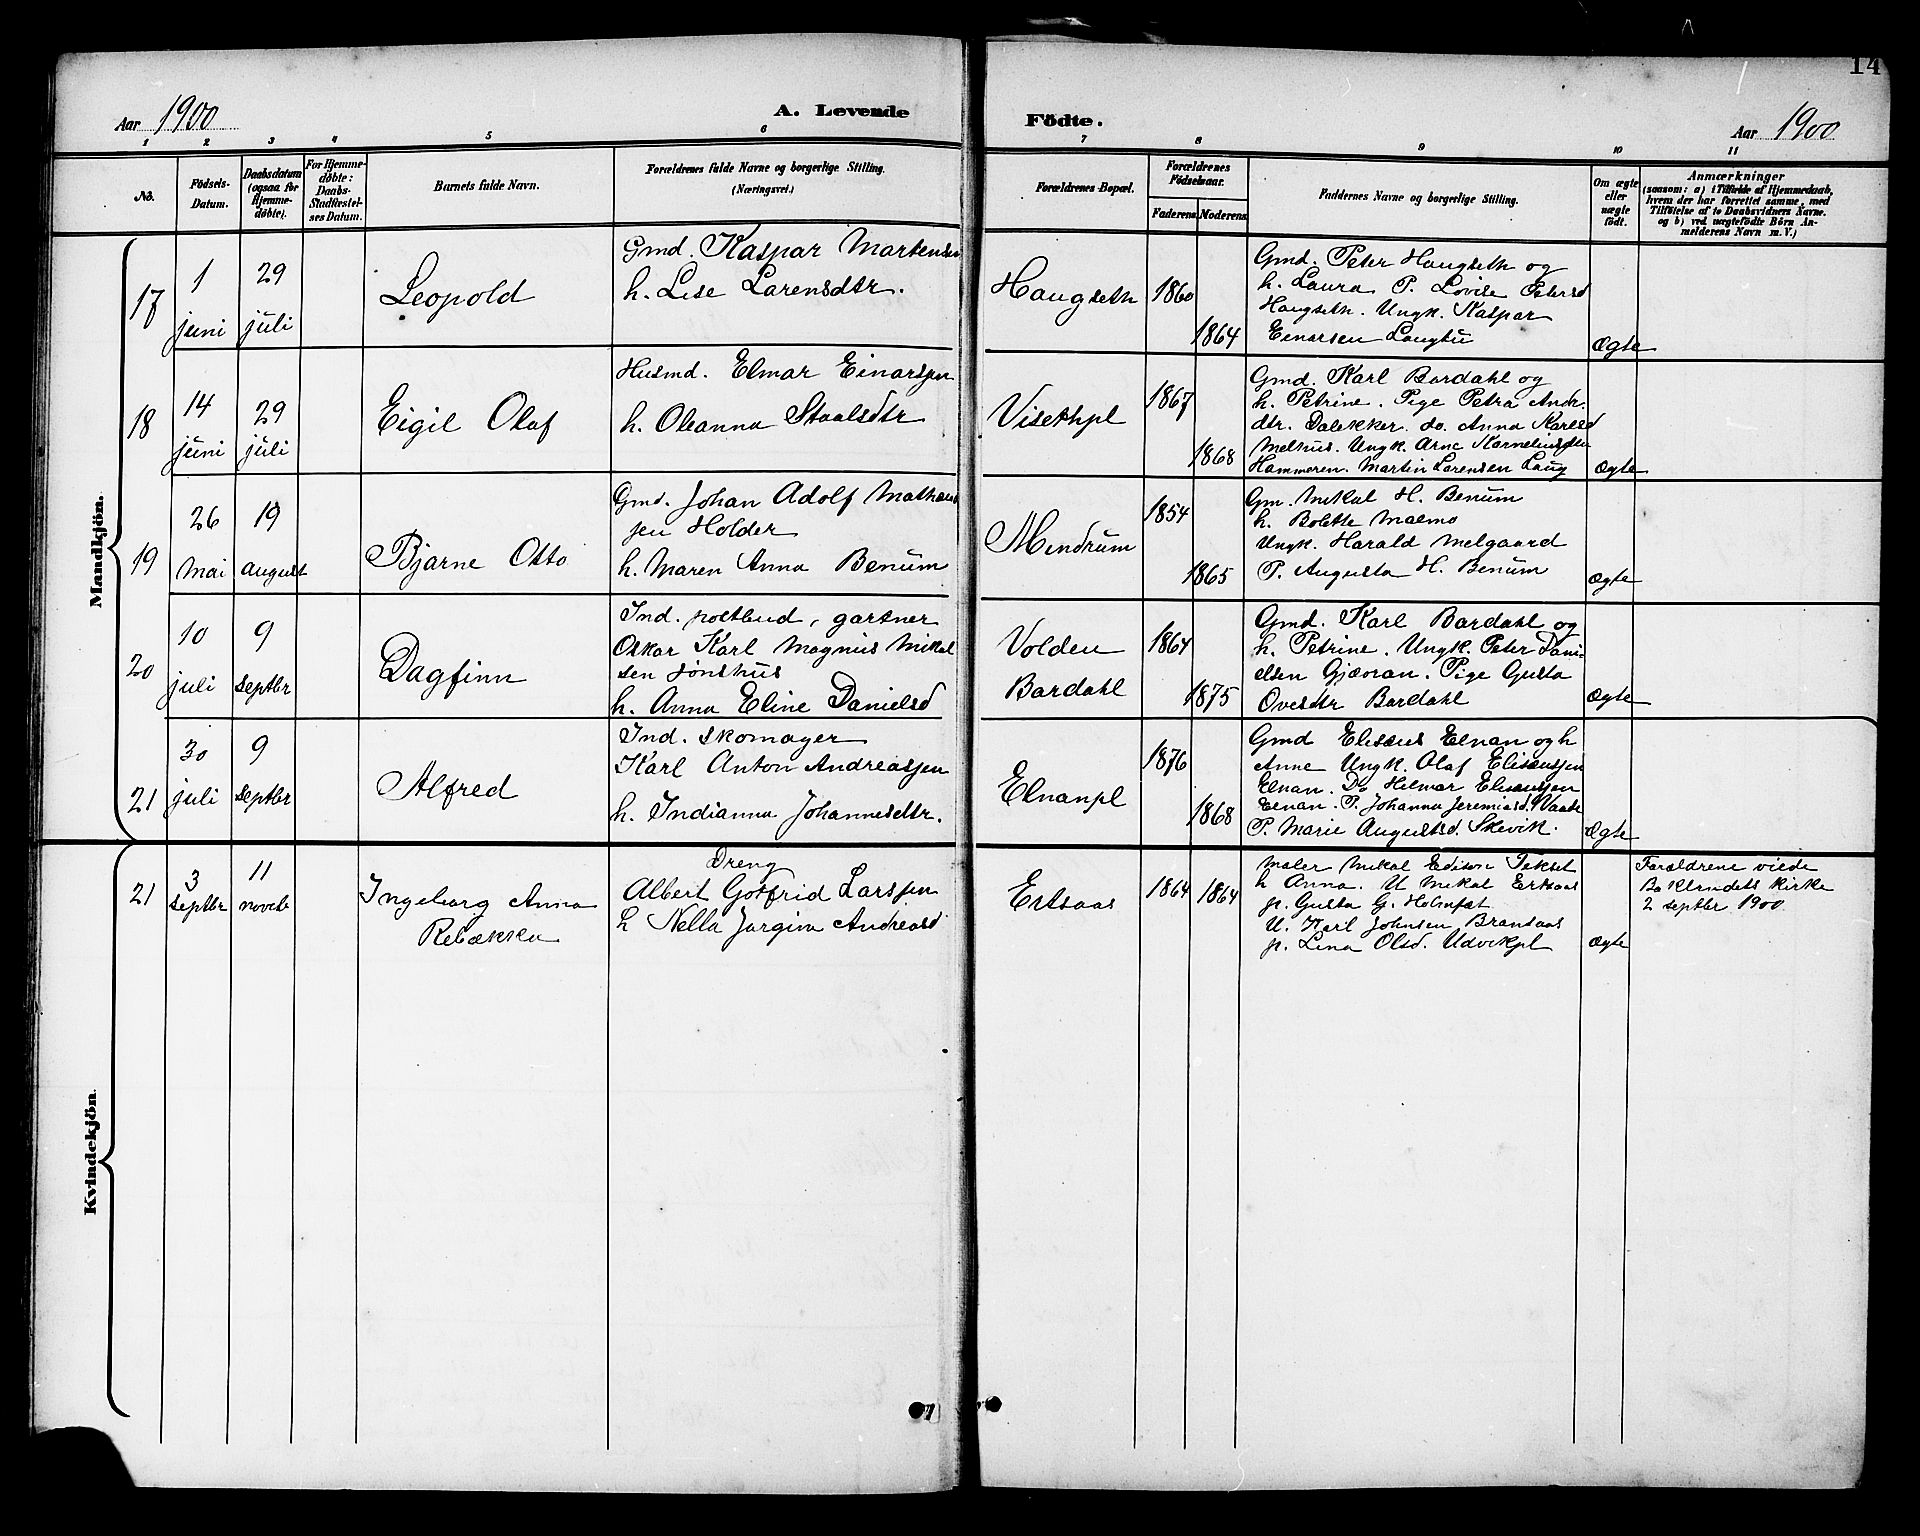 14
Aar 1900
A. Levende
Födte.
Aar 1900
1 2 3 4 5 6 7 8 9 10 11
No.
Födsels-
Datum.
Daabsdatum
(ogsaa for
Hjemme-
døbte).
For Hjemme-
døbte:
Daabs-
Stadfæstel-
ses Datum.
Barnets fulde Navn.
Forældrenes fulde Navne og borgerlige Stilling.
(Næringsvei.)
Forældrenes Bopæl.
Forældrenes
Födselsaar.
Faderens. Moderens.
Faddernes Navne og borgerlige Stilling.
Om ægte
eller
uægte
födt.
Anmærkninger
(saasom: a) i Tilfælde af Hjemmedaab,
hvem der har forrettet samme, med
Tilföielse af to Daabsvidners Navne.
og b) ved uægtefödte Börn An-
melderens Navn m. V.)
Mandkjön.
17
1
juni
29
juli
Leopold
Gmd. Kaspar Martensen
h. Lise Larensdtr.
Haugseth
1860
1864
Gmd. Peter Haugseth og
h. Laura P. Lovise Petersd
Haugseth. Ungk. Kaspar
Einarsen Langtu
Ægte
18
14
juni
29
juli
Eigil Olaf
Husmd. Elmar Einarssen
h. Oleanna Staalsdtr
Visethpl
1867
1868
Gmd. Karl Bardahl og
h. Petrine. Pige Petra Andr.
dtr. Dalekker. do. Anna Karlsd
Melhus. Ungk. Arne Korneliussen
Hammeren. Martin Larensen Laug
Ægte
19
26
mai
19
august
Bjarne Otto
Gmd. Johan Adolf Mathæus
sen Holder
h. Maren Anna Benum
Mindrum
1854
1865
Gm. Mikal H. Benum
h. Bolette Malmo
Ungk. Harald Melgaard
P. Augusta H. Benum
Ægte
20
10
juli
9
septbr
Dagfinn
Ind. postbud, gartner
Oskar Karl Magnus Mikal
sen Jønshus
h. Anna Eline Danielsd
Volden
Bardahl
1864
1875
Gmd. Karl Bardahl og
h. Petrine. Ungk. Peter Dani-
elsen Gjævran. Pige Gusta
Ovesdtr Bardahl
Ægte
21
30
juli
9
septbr
Alfred
Ind. skomager
Karl Anton Andreassen
h. Indianna Johannesdtr.
Elnanpl
1876
1868
Gmd Elisæus Elnan og h
Anne Ungk. Olaf Elisæussen
Elnan. Do Helmar Elisæussen
Elnan. P. Johanna Jeremiasd. Vaade
P. Marie Augustsd. Skevik.
Ægte
Kvindekjön.
21
3
septbr
11
novebr
Ingeborg Anna
Rebækka
Dreng
Albert Gotfrid Larssen
h Nella Jørgine Andreasd
Ertsaas
1864
1864
Maler Mikal Edison Tekset
h Anna. U Mikal Ertsaas
p. Gusta G. Holmset
U. Karl Johnsen Brandsaas
p. Lina Olsd. Udvikpl
Ægte
Forældrene viede
Baklandets kirke
2 septbr 1900.